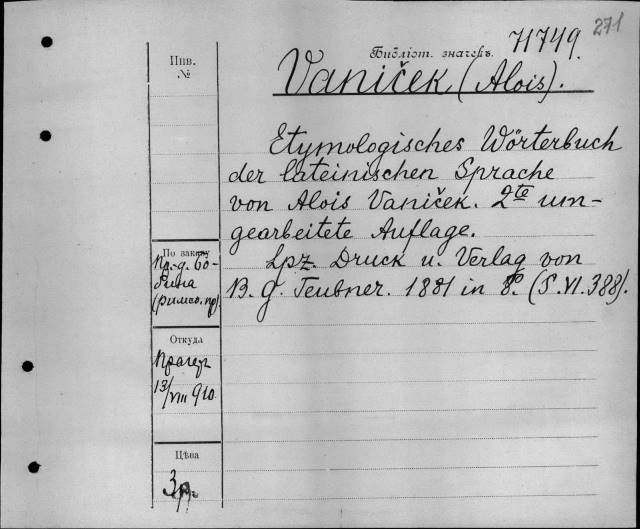 271
Библіот. значекъ. 71749.
Инв.
№
Vaniček (Alois).
Etymologisches Wörterbuch
der lateinischen Sprache
von Alois Vaniček. 2te um-
gearbeitete Auflage.
Lpz. Druck u. Verlag von
B. G. Teubner. 1881 in 8º. (S. VI. 388).
По заказу
Пр.-д. Бо-
(римск. пр).
Откуда
13/VIII 910.
Цѣна
3 р.